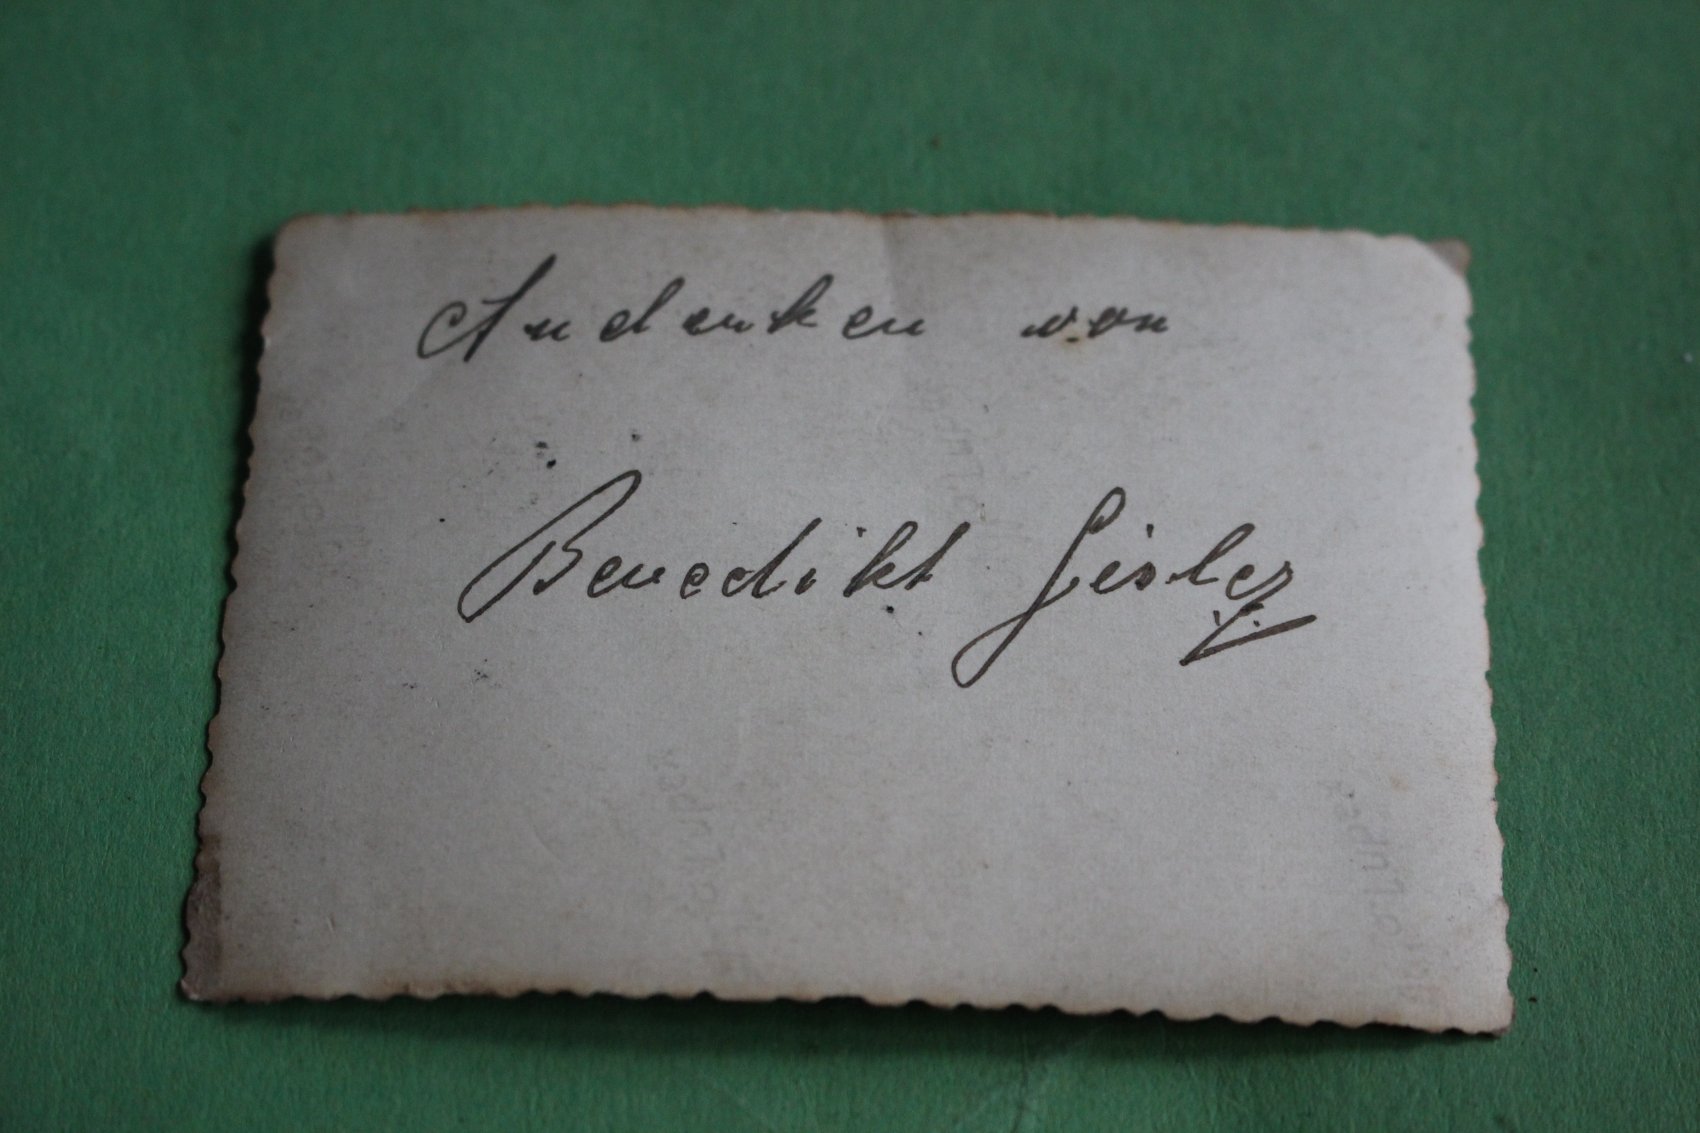 Andenken von
Benedikt Gisler